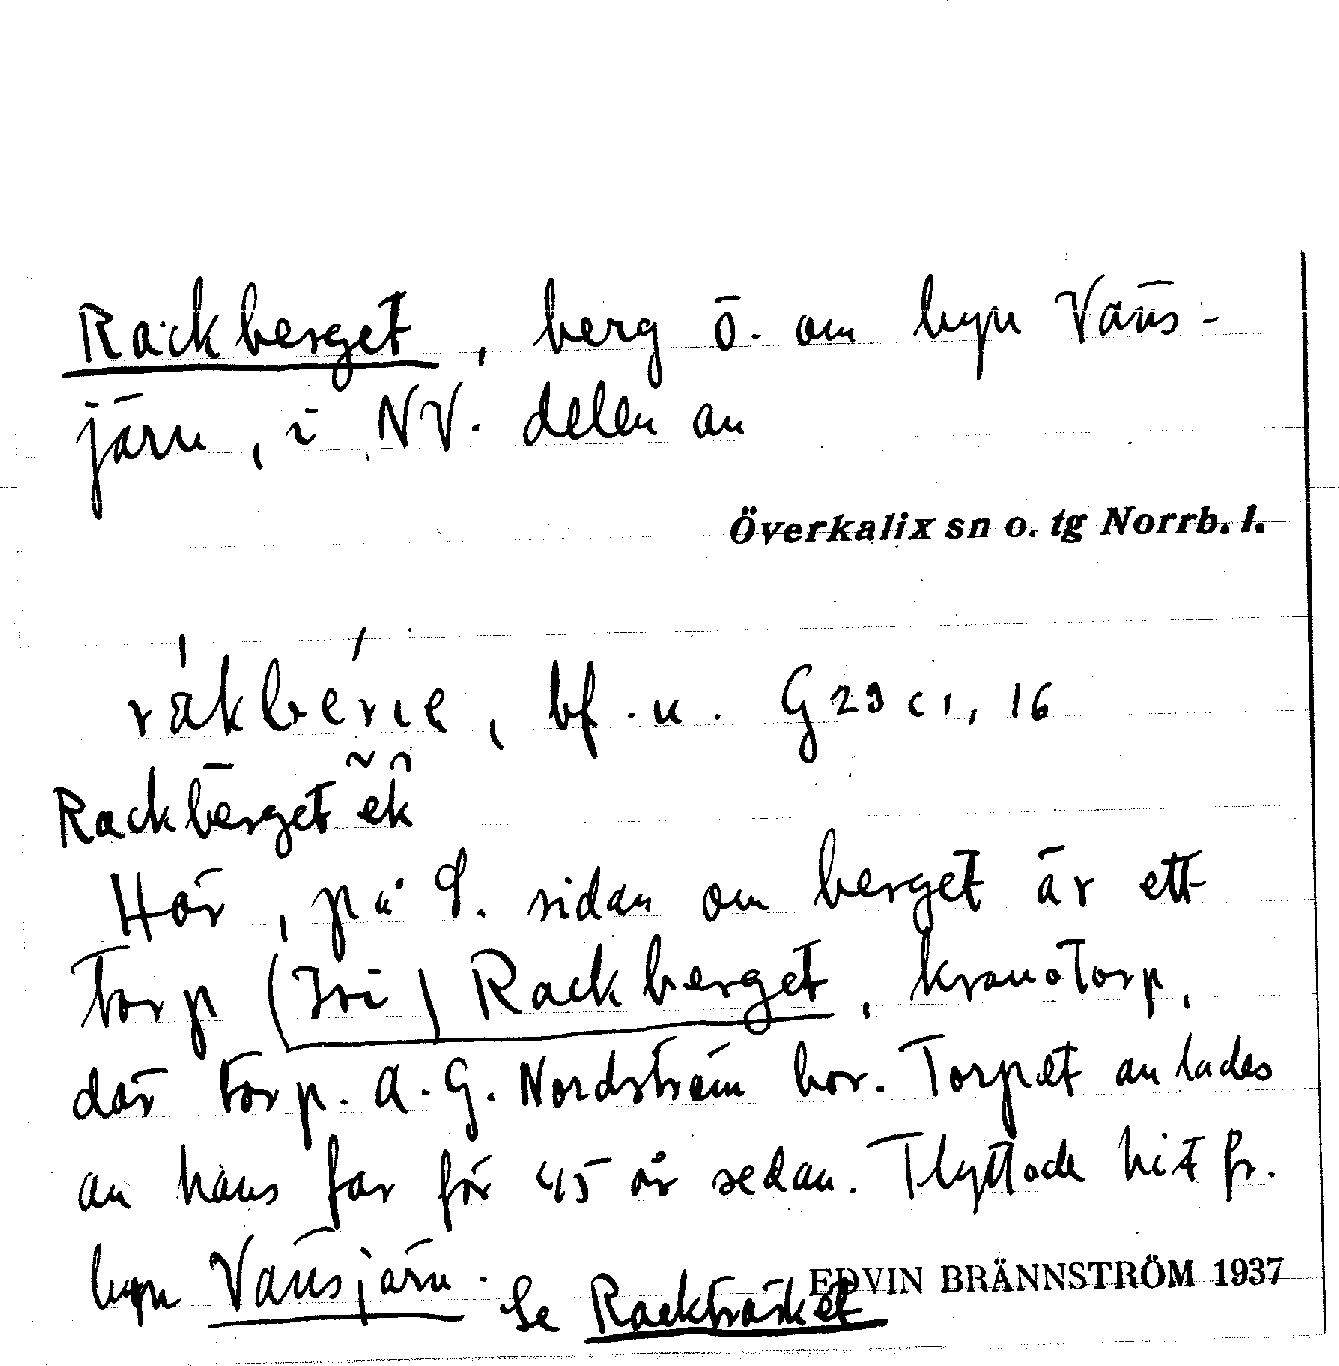 Rackberget, berg ö. om byn Väns-
järv, i NV. delen av
Överkalix sn o. tg Norrb. l.
bf. n. G 29 c 1, 16
Rackberget
Här, på S. sidan om berget är ett
torp (Tvi) Rackberget, kronotorp,
där torp. A. G. Nordström bor. Torpet anlades
av hans far för 45 år sedan. Flyttade hit fr.
byn Vänsjärv. Se Rackträsket
EDVIN BRÄNNSTRÖM 1937